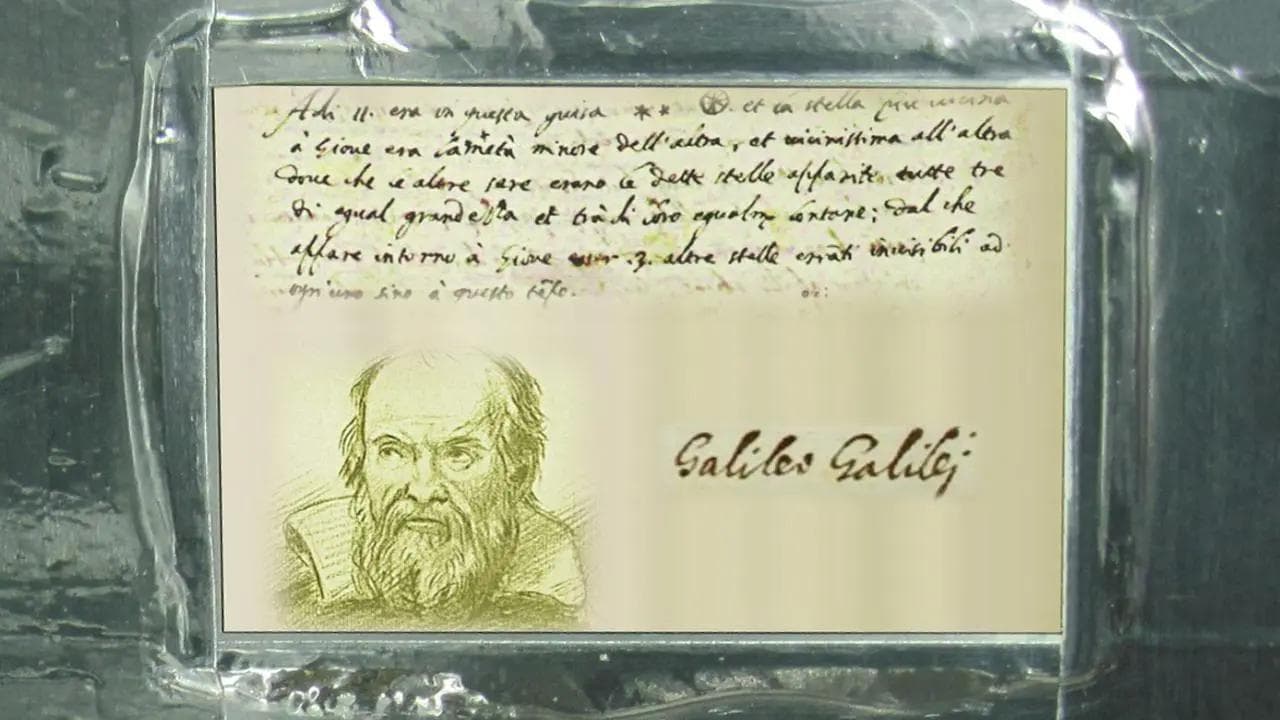 Adi 11. era in questa guisa ** . et la stella più vicina
à Giove era la metà minore dell'altra, et vicinissima all'altra
dove che le altre sere erano le dette stelle apparite tutte tre
di egual grandezza et trà di loro egualm lontane; dal che
appare intorno à Giove .3. altre stelle erranti invisibili ad
ogn'uno sino à questo tẽpo.
Galileo Galilej